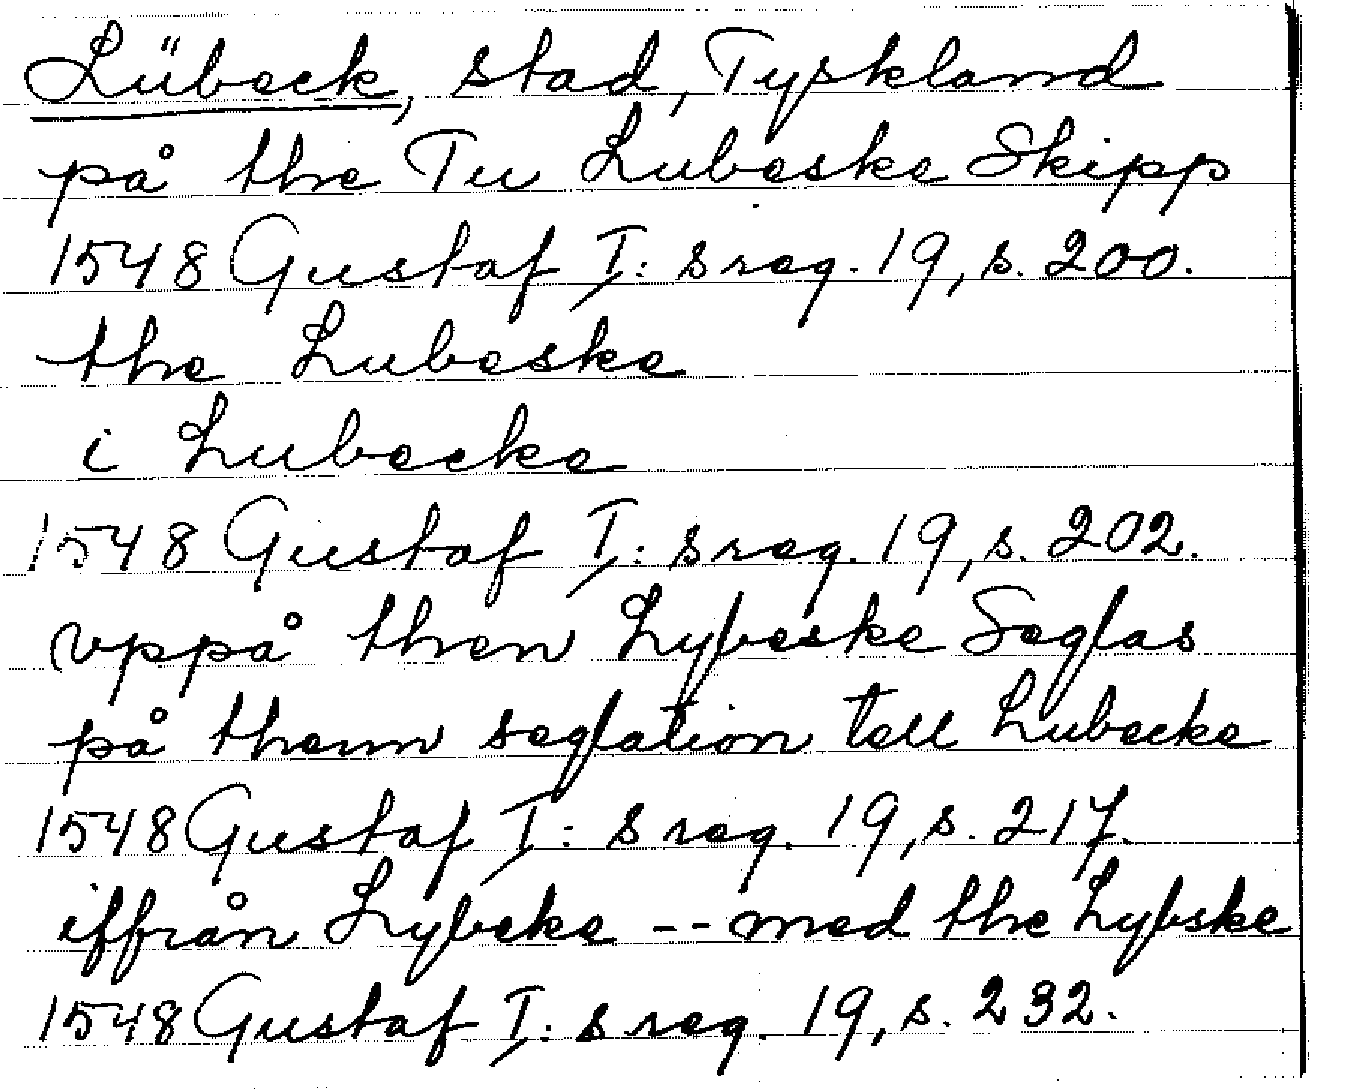 Lübeck, stad, Tyskland
på the Tu Lubeske Skipp
1548 Gustaf I: s reg. 19, s. 200.
the Lubeske
i Lubecke
1548 Gustaf I: s reg. 19, s. 202.
vppå then Lybeske Seglas
på thenn seglation tell Lubecke
1548 Gustaf I: s reg. 19, s. 217.
iffrån Lybeke -- med the Lybske
1548 Gustaf I: s reg. 19, s. 232.